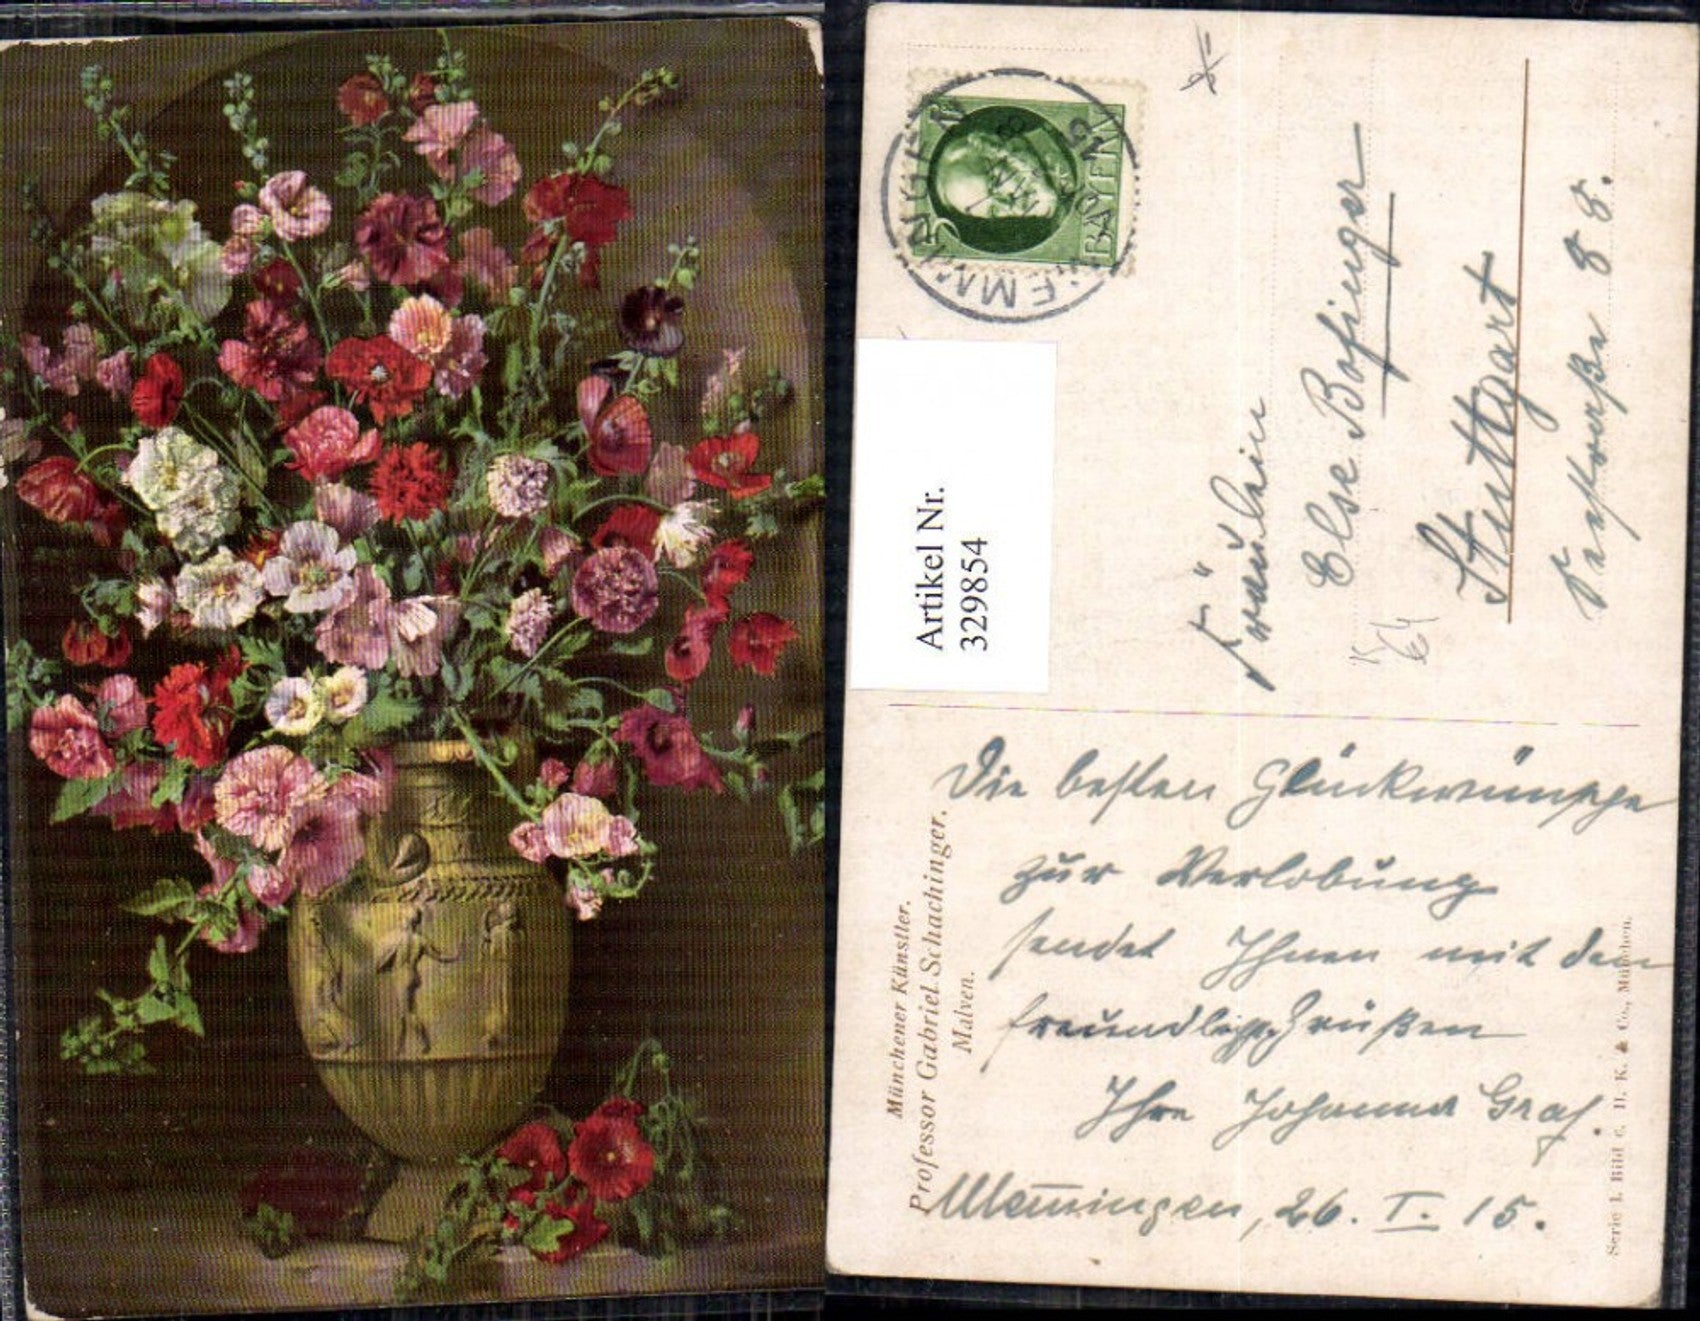 MEMMINGEN
5
BAYERN
Artikel Nr.
329854
Fräulein
Else Bofinger
Stuttgart
88.
Die besten Glückwünsche
zur Verlobung
sendet Ihnen mit den
freundlichst. Grüßen
Ihre Johanna Graf.
Memingen, 26. I. 15.
Münchener Künstler.
Professor Gabriel Schachinger.
Malven.
Serie I. Bild 6. H. K. & Co., München.